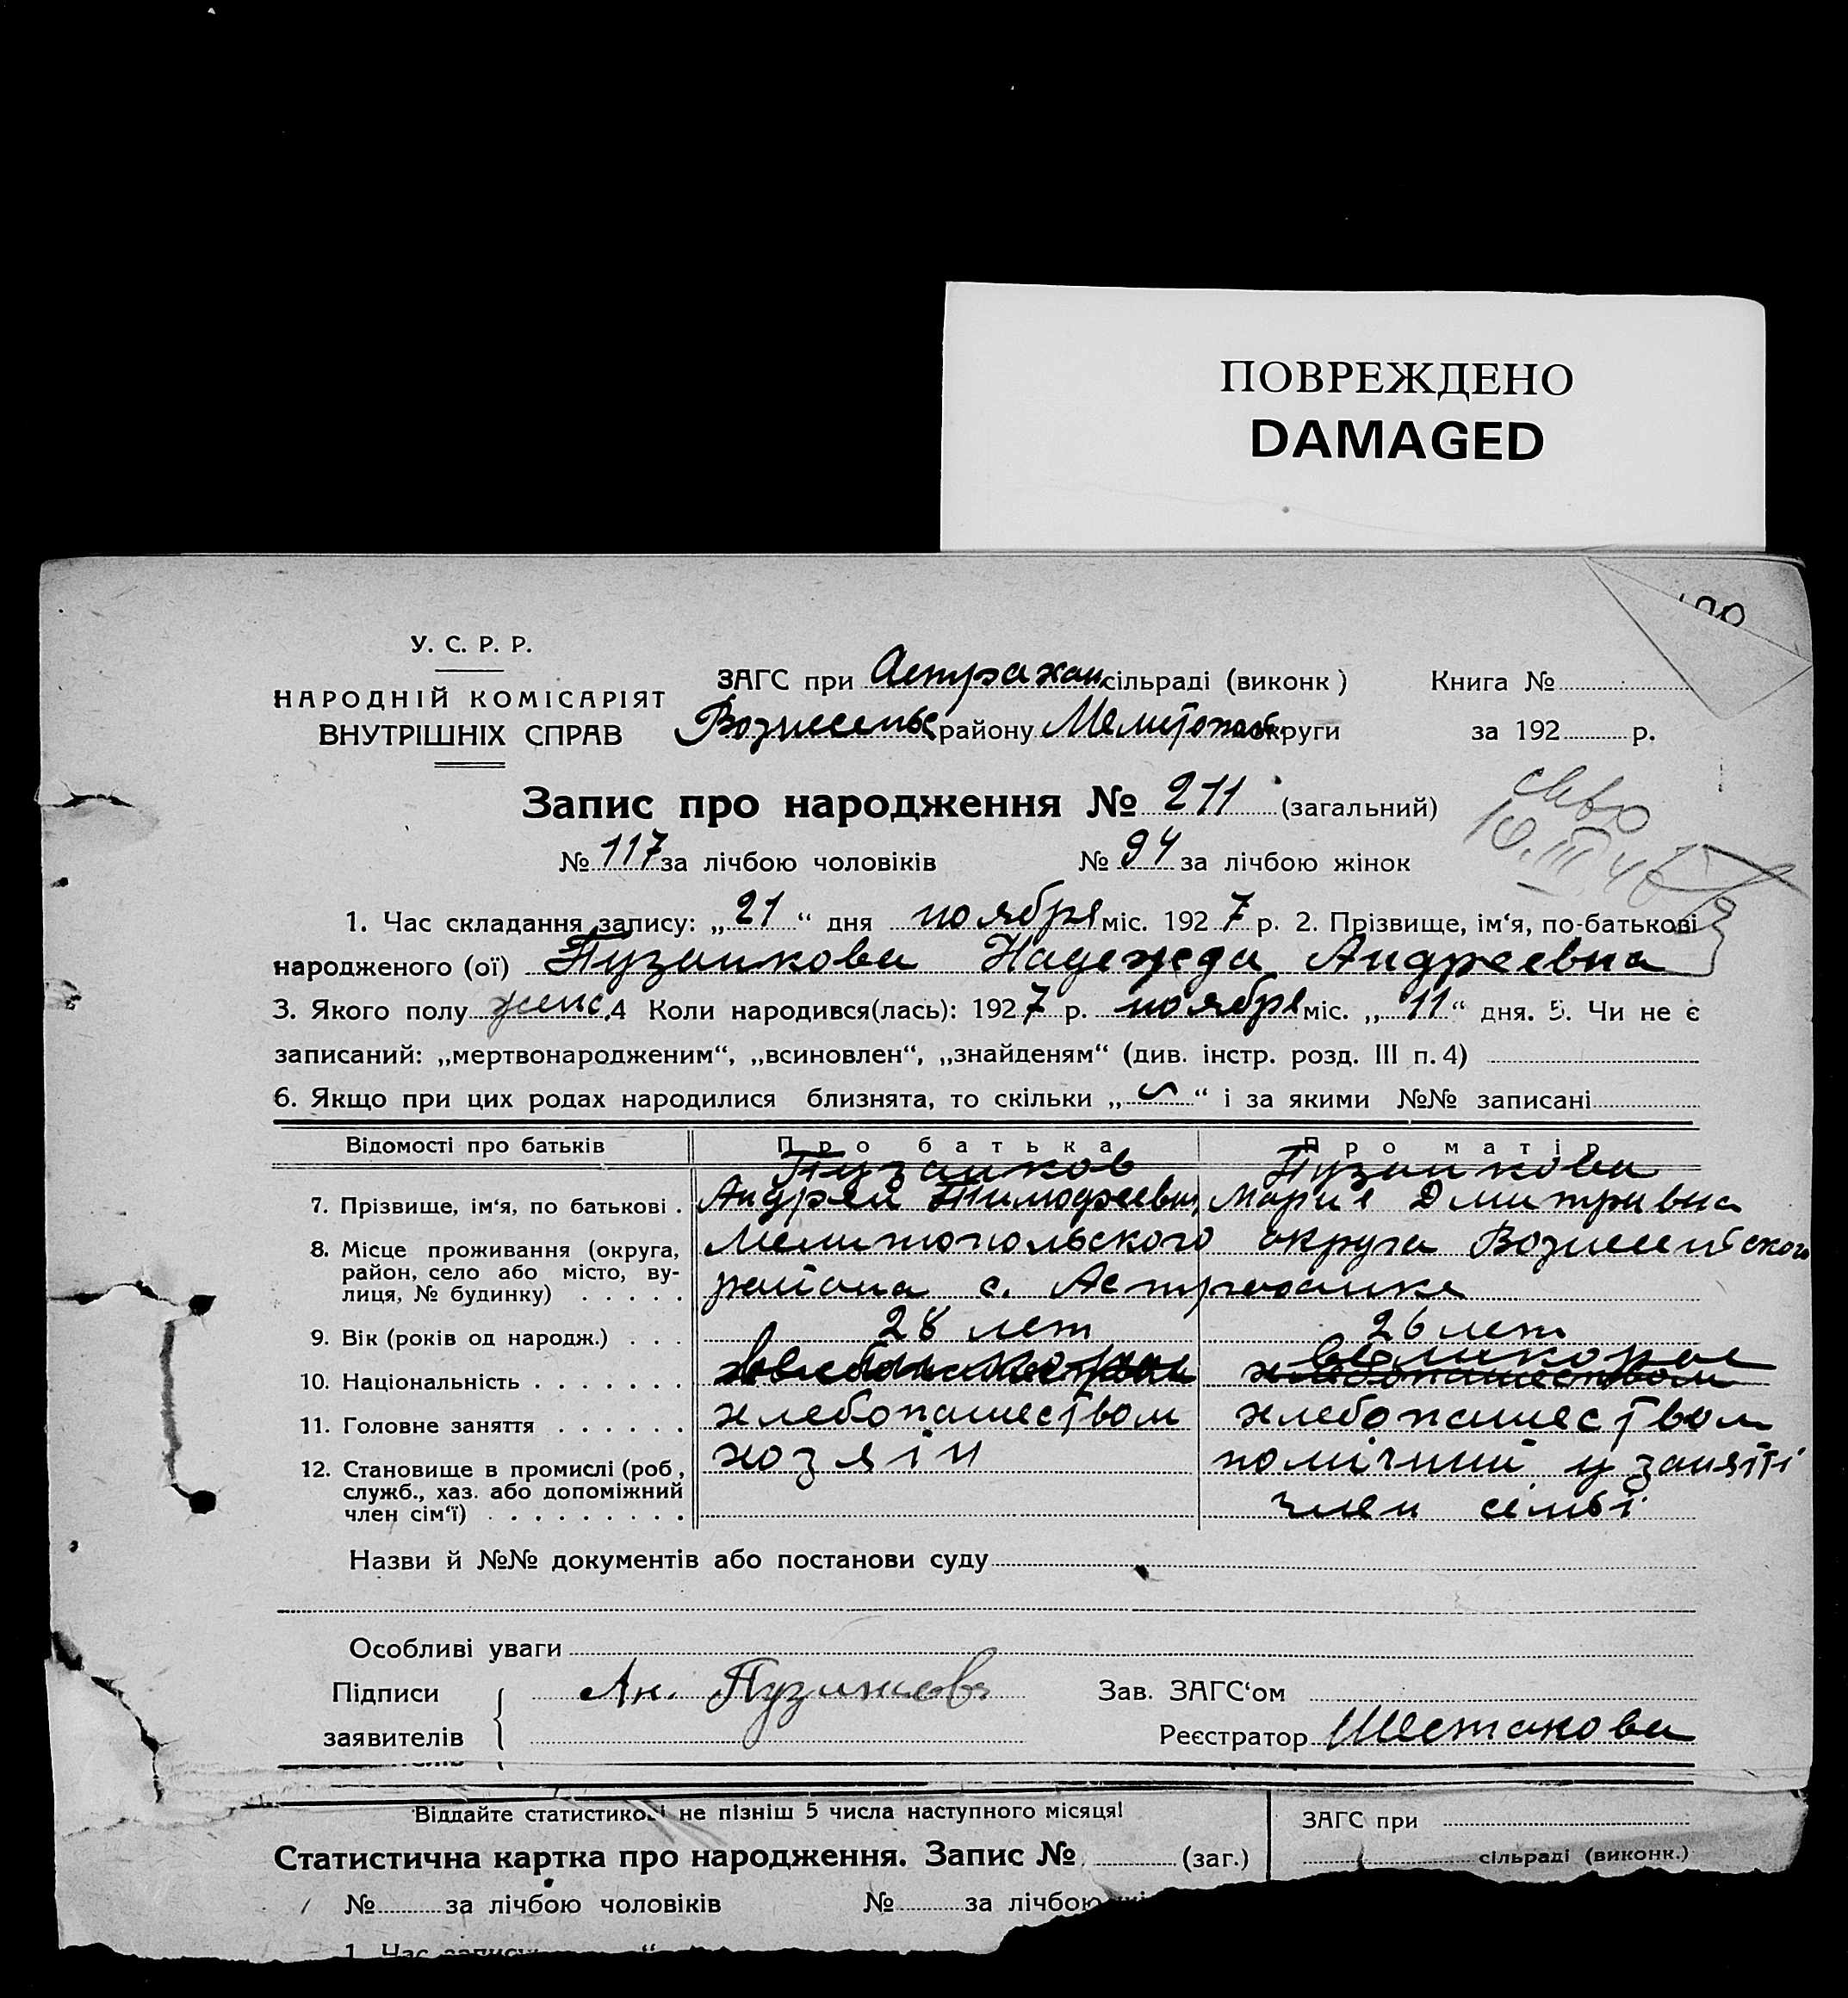 ПОВРЕЖДЕНО
DAMAGED
У. С. Р. Р.
НАРОДНІЙ КОМІСАРІЯТ
ВНУТРІШНІХ СПРАВ
ЗАГС при Астрахан сільраді (виконк) Книга №
Вознесенс району Мелитопол округи за 192 р.
Запис про народження № 211 (загальний)
№ 117 за лічбою чоловіків № 94 за лічбою жінок
1. Час складання запису: „21“ дня ноября міс. 1927 р. 2. Прізвище, ім‘я, по-батькові
народженого (ої) Пузанкова Надежда Андреевна
3. Якого полу женс. 4 Коли народився(лась): 1927 р. ноября міс. „11“ дня. 5. Чи не є
записаний: „мертвонародженим“, „всиновлен“, „знайденям“ (див. інстр. розд. III п. 4)
6. Якщо при цих родах народилися близнята, то скільки „ “ і за якими №№ записані
Відомості про батьків Про батька Про матір
Пузанков Пузанкова
7. Прізвище, ім‘я, по батькові . Андрей Тимофеевич Мария Дмитривна
8. Місце проживання (округа, район, село або місто, вулиця, № будинку) . . . . . Мелитопольского округа Вознесенского
района с. Астраханка
9. Вік (років од народж.) . . . 28 лет 26 лет
10. Національність . . . . . . . великорос
11. Головне заняття . . . . . . хлебопашеством хлебопашеством
12. Становище в промислі (роб., служб., хаз. або допоміжний член сім‘ї) . . . . . . . . . хозяін помічний у заняті
член сімьі
Назви й №№ документів або постанови суду
Особливі уваги
Підписи Ан. Пузанков Зав. ЗАГС‘ом
заявителів Реєстратор Шестакова
Віддайте статистикові не пізніш 5 числа наступного місяця! ЗАГС при
Статистична картка про народження. Запис № (заг.) сільраді (виконк.)
№ за лічбою чоловіків № за лічбою
1. Час запису